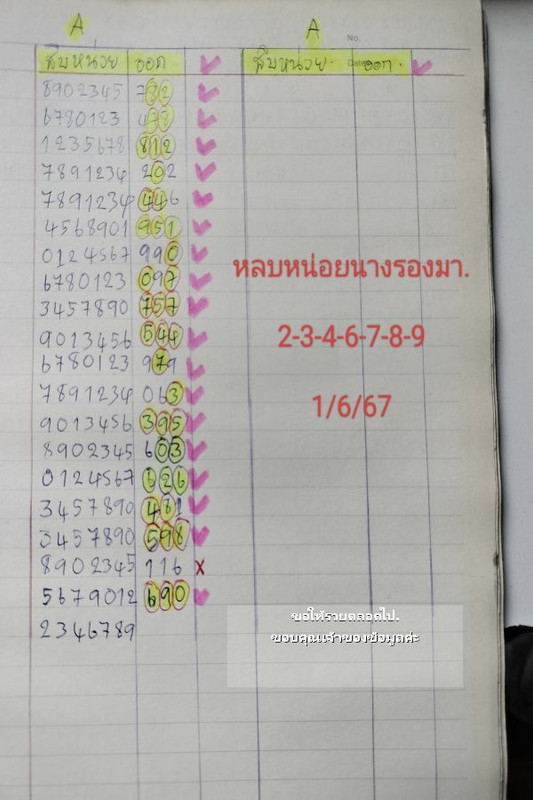 A
A
No.
สิบหน่วย ออก
สิบหน่วย. Date ออก.
8902345 782
6780123 478
1235678 812
7891234 202
7891234 446
4568901 951
0124567 990
6780123 097
3457890 757
9013456 544
6780123 979
7891234 063
9013456 395
8902345 603
0124567 626
3457890 481
3457890 598
8902345 116 x
5679012 690
2346789
หลบหน่อยนางรองมา.
2-3-4-6-7-8-9
1/6/67
ขอให้รวยตลอดไป.
ขอบคุณเจ้าของข้อมูลค่ะ